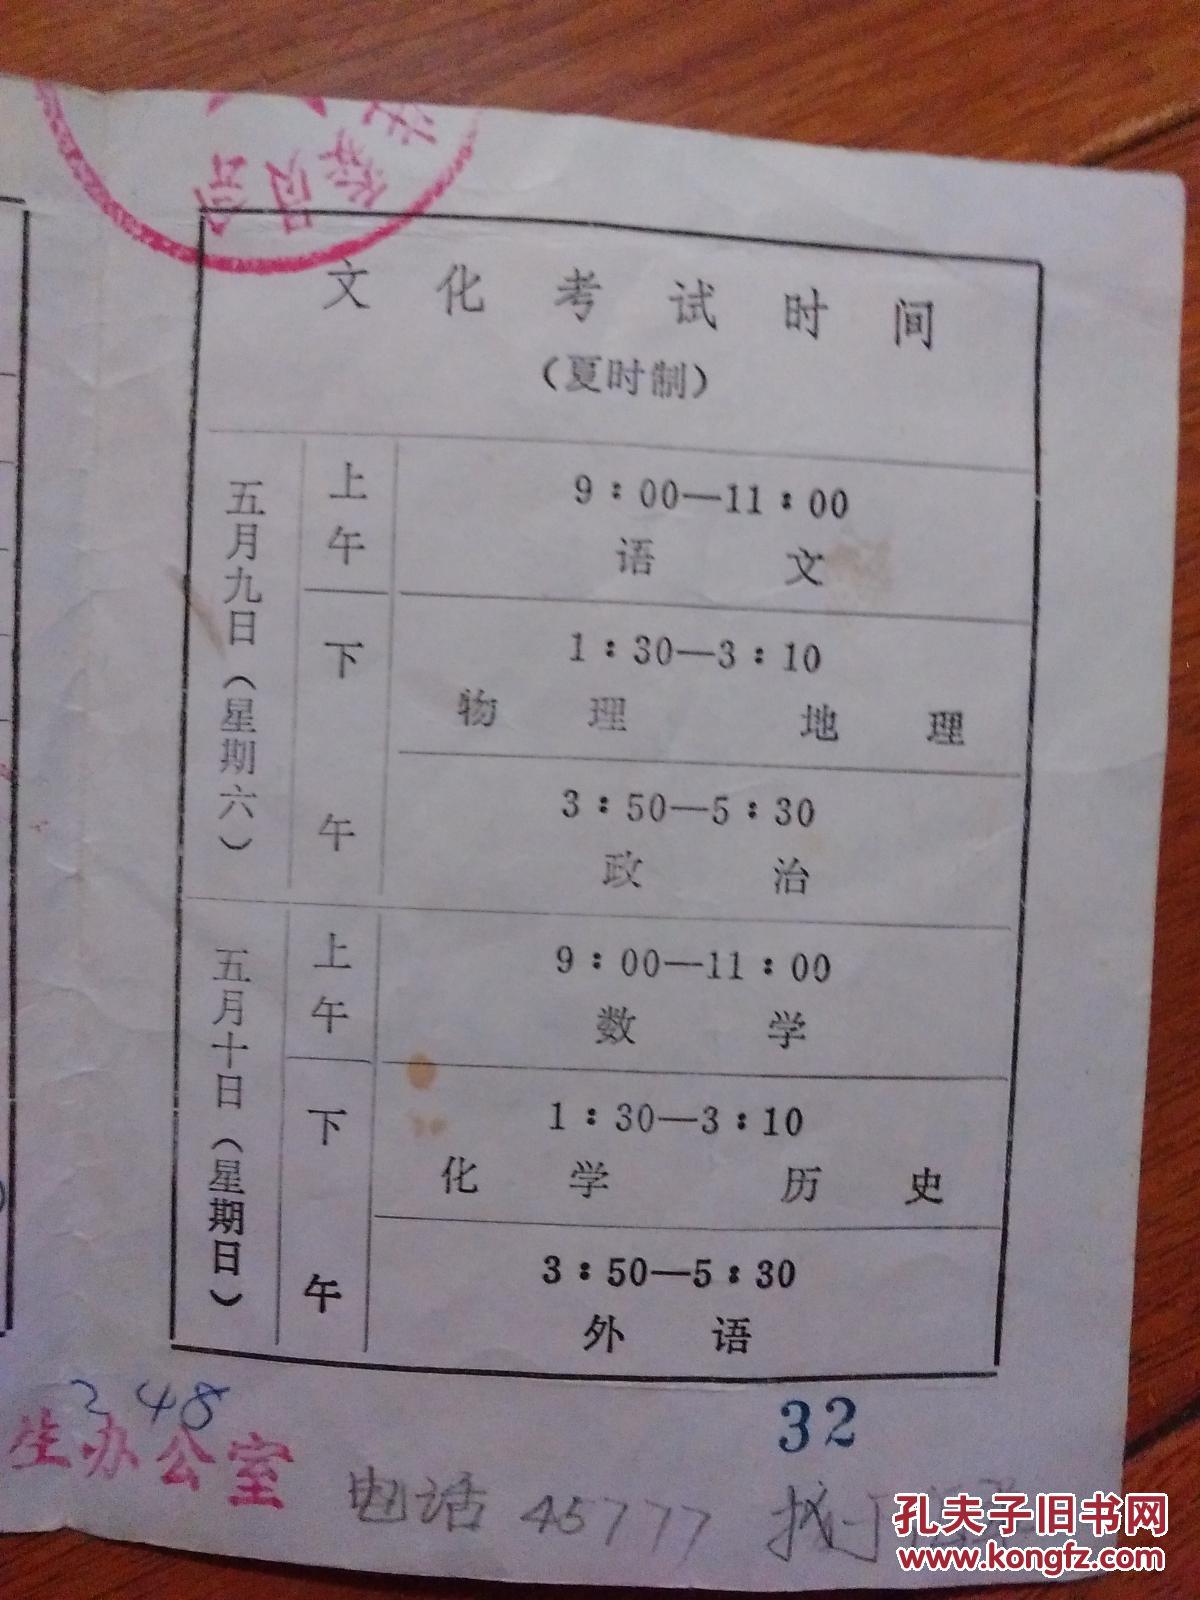 委员会
文化考试时间
(夏时制)
五月九日(星期六)
上午
9:00—11:00
语文
下午
1:30—3:10
物理 地理
3:50—5:30
政治
五月十日(星期日)
上午
9:00—11:00
数学
下午
1:30—3:10
化学 历史
3:50—5:30
外语
248
生办公室
32
电话 45777 找
孔夫子旧书网
www.kongfz.com